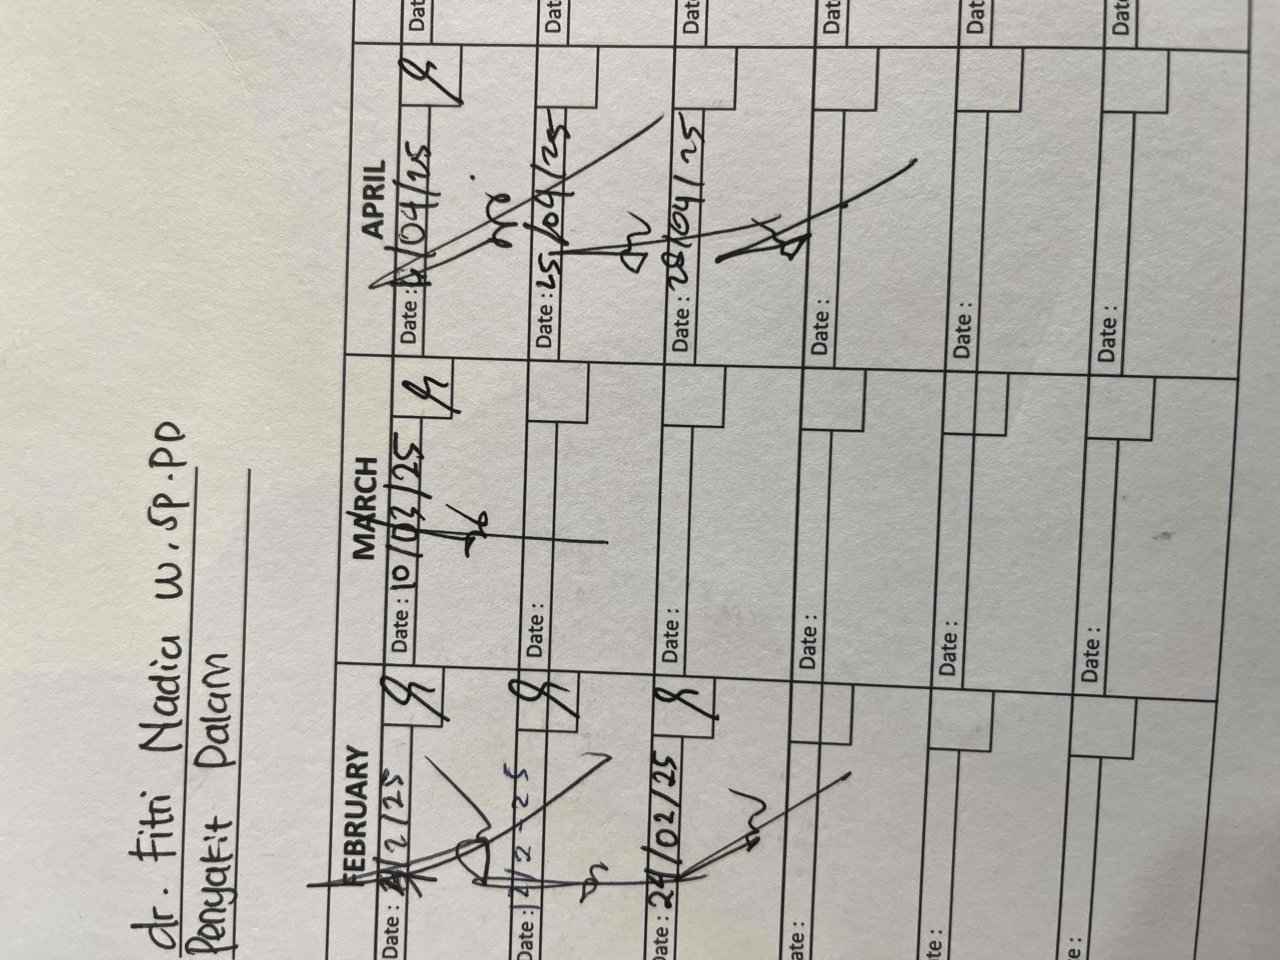 dr. Fitri Nadia W. Sp.PD
Penyakit Dalam
FEBRUARY MARCH APRIL
Date : /2/25 Date : 10/03/25 Date : /04/25 Dat
Date : 2-25 Date : Date : 25/04/25 Dat
Date : 24/02/25 Date : Date : 28/04/25 Dat
ate : Date : Date : Dat
te : Date : Date : Dat
e : Date : Date : Date